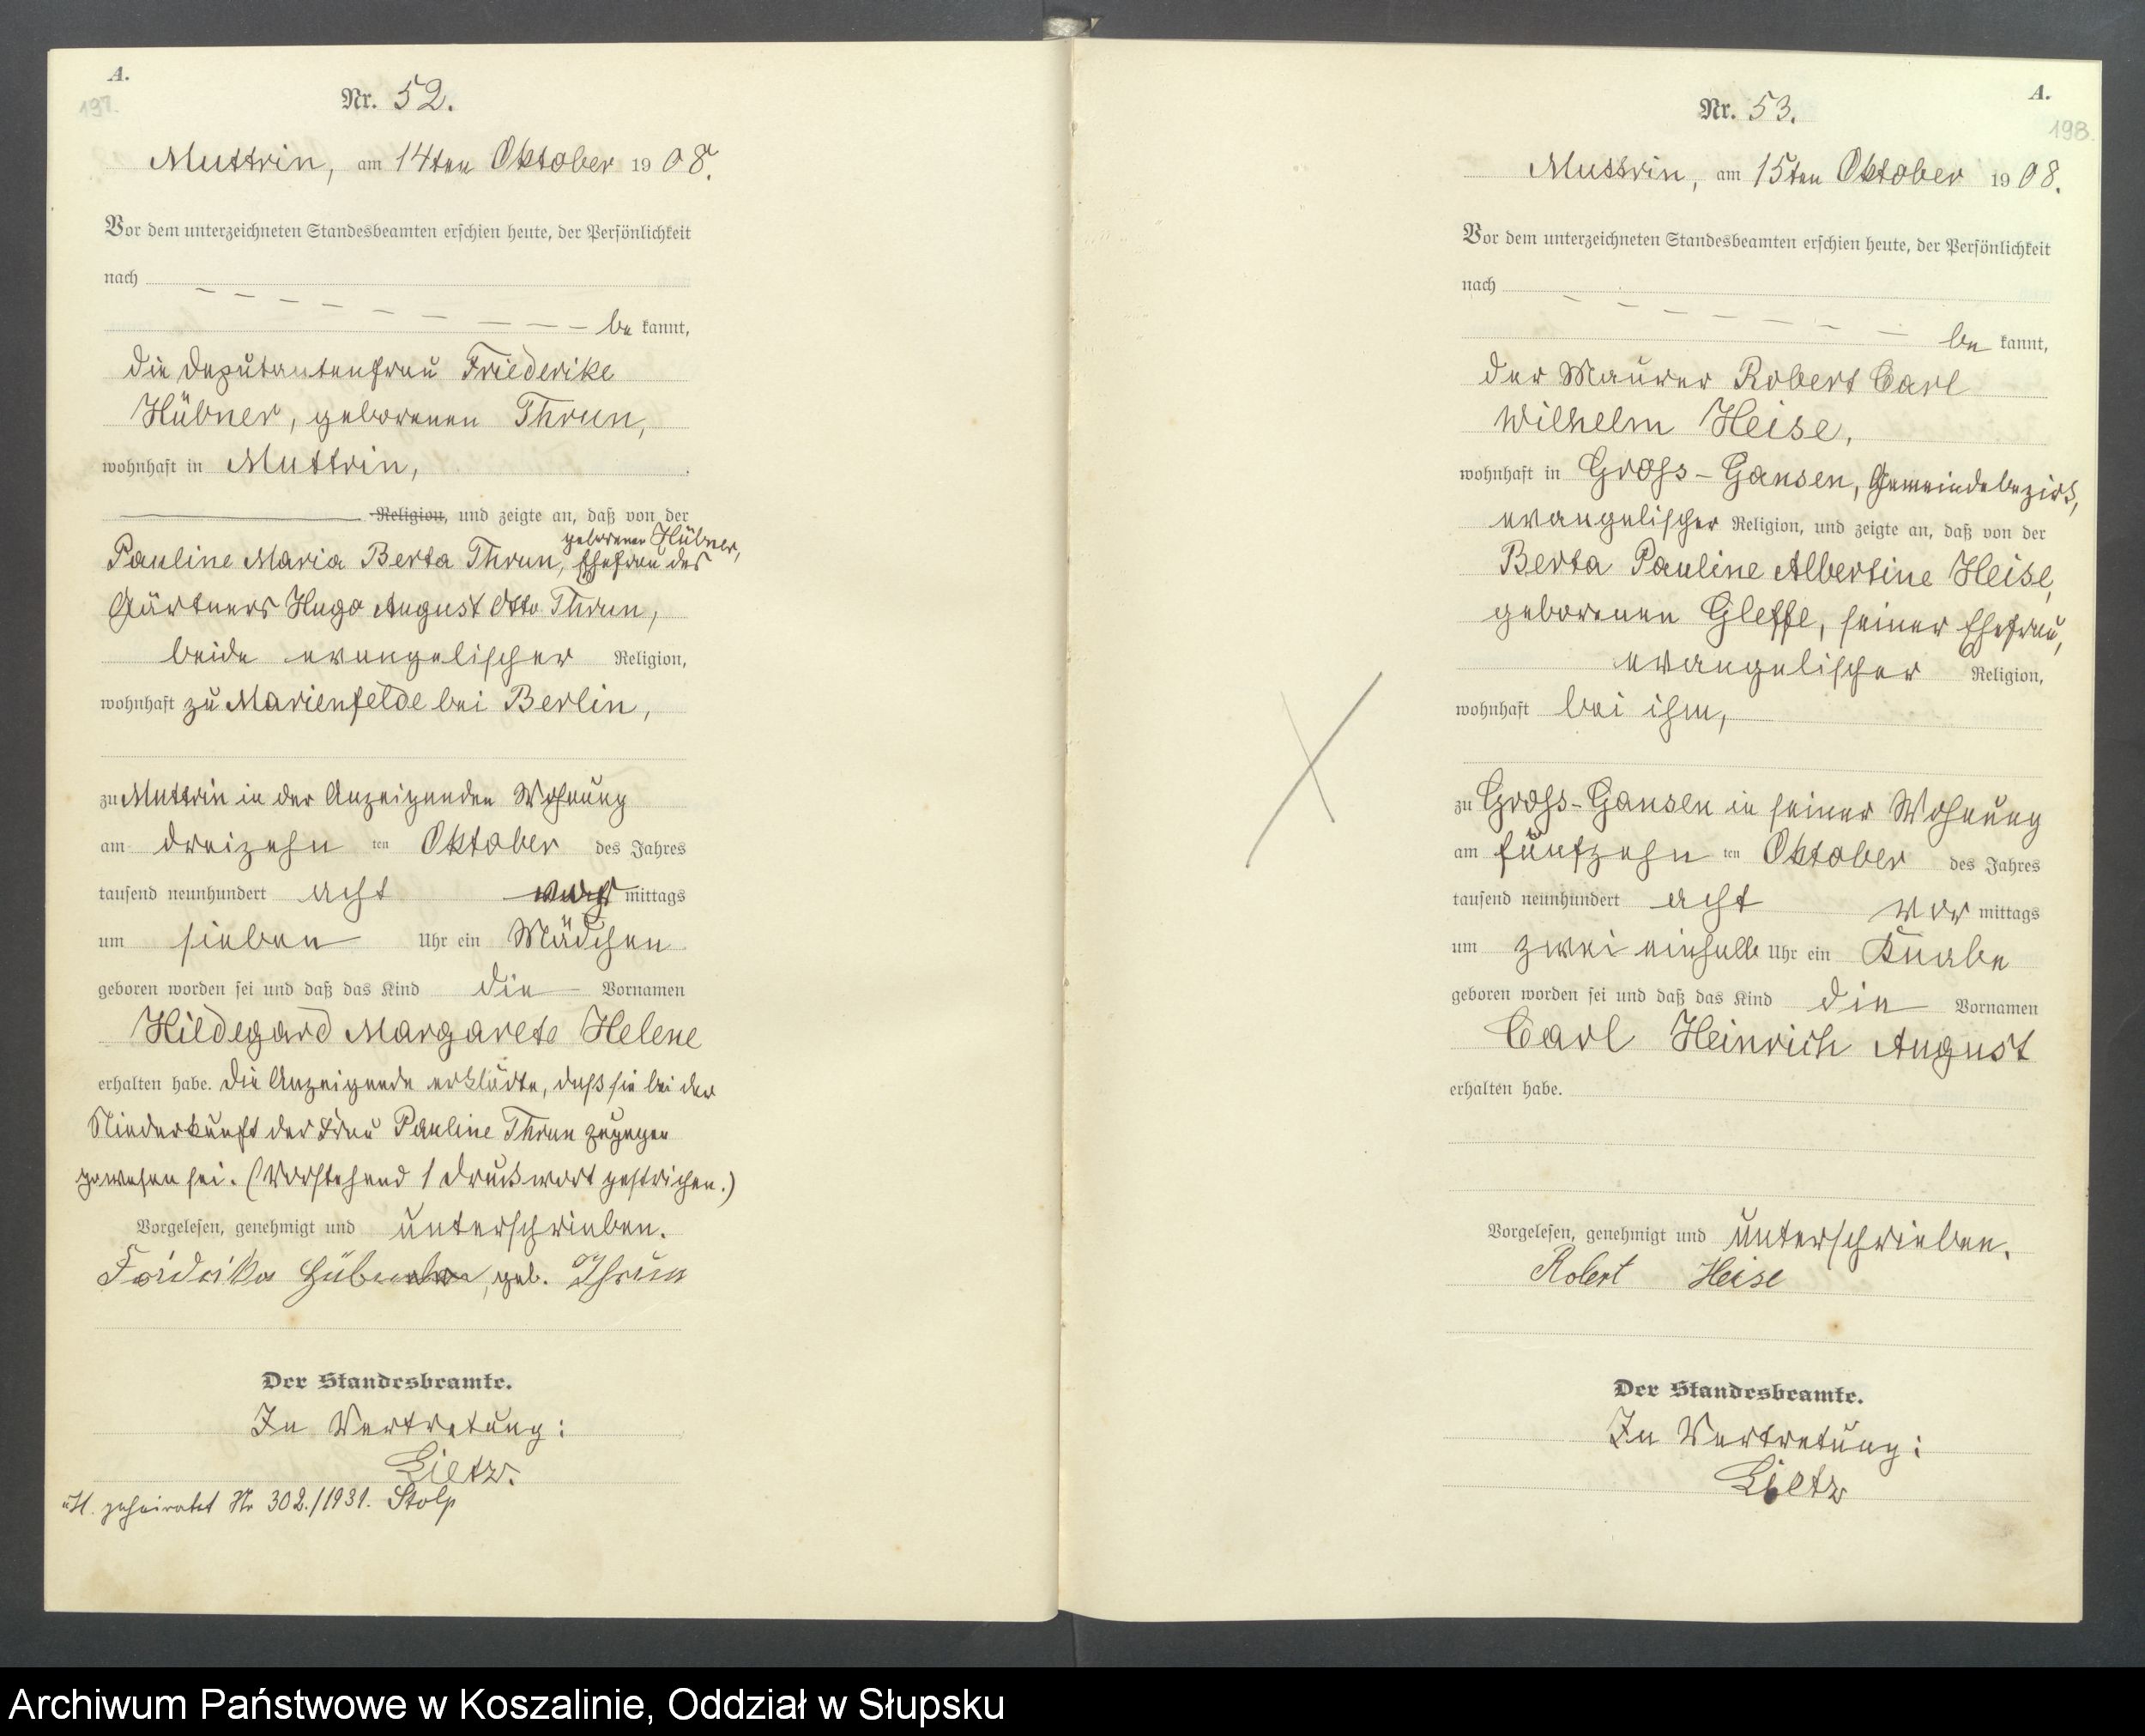 A.
197.
Nr. 52.
Muttrin, am 14ten Oktober 1908.
Vor dem unterzeichneten Standesbeamten erschien heute, der Persönlichkeit
nach
be kannt,
die Deputantenfrau Friederike
Hübner, geborenen Thrun,
wohnhaft in Muttrin,
Religion, und zeigte an, daß von der
geborener Hübner,
Pauline Maria Berta Thrun, Ehefrau des
Gärtners Hugo August Otto Thrun,
beide evangelischer Religion,
wohnhaft zu Marienfelde bei Berlin,
zu Muttrin in der Anzeigenden Wohnung
am dreizehn ten Oktober des Jahres
tausend neunhundert acht mittags
um sieben Uhr ein Mädchen
geboren worden sei und daß das Kind die Vornamen
Hildegard Margarete Helene
erhalten habe. Die Anzeigende erklärte, daß sie bei der
Niederkunft der Frau Pauline Thrun zugegen
gewesen sei. (Vorstehend 1 Druckwort gestrichen.)
Vorgelesen, genehmigt und unterschrieben.
geb. Thrun
Der Standesbeamte.
In Vertretung:
Lietz.
geheiratet Nr 302./1931. Stolp
A.
198.
Nr. 53.
Muttrin, am 15ten Oktober 1908.
Vor dem unterzeichneten Standesbeamten erschien heute, der Persönlichkeit
nach
be kannt,
der Maurer Robert Carl
Wilhelm Heise,
wohnhaft in Groß-Gansen, Gemeindebezirk,
evangelischer Religion, und zeigte an, daß von der
Berta Pauline Albertine Heise,
geborenen Gleffe, seiner Ehefrau,
evangelischer Religion,
wohnhaft bei ihm,
zu Groß-Gansen in seiner Wohnung
am fünfzehn ten Oktober des Jahres
tausend neunhundert acht vor mittags
um zwei einhalb Uhr ein Knabe
geboren worden sei und daß das Kind die Vornamen
Carl Heinrich August
erhalten habe.
Vorgelesen, genehmigt und unterschrieben.
Robert Heise
Der Standesbeamte.
In Vertretung:
Lietz
Archiwum Państwowe w Koszalinie, Oddział w Słupsku